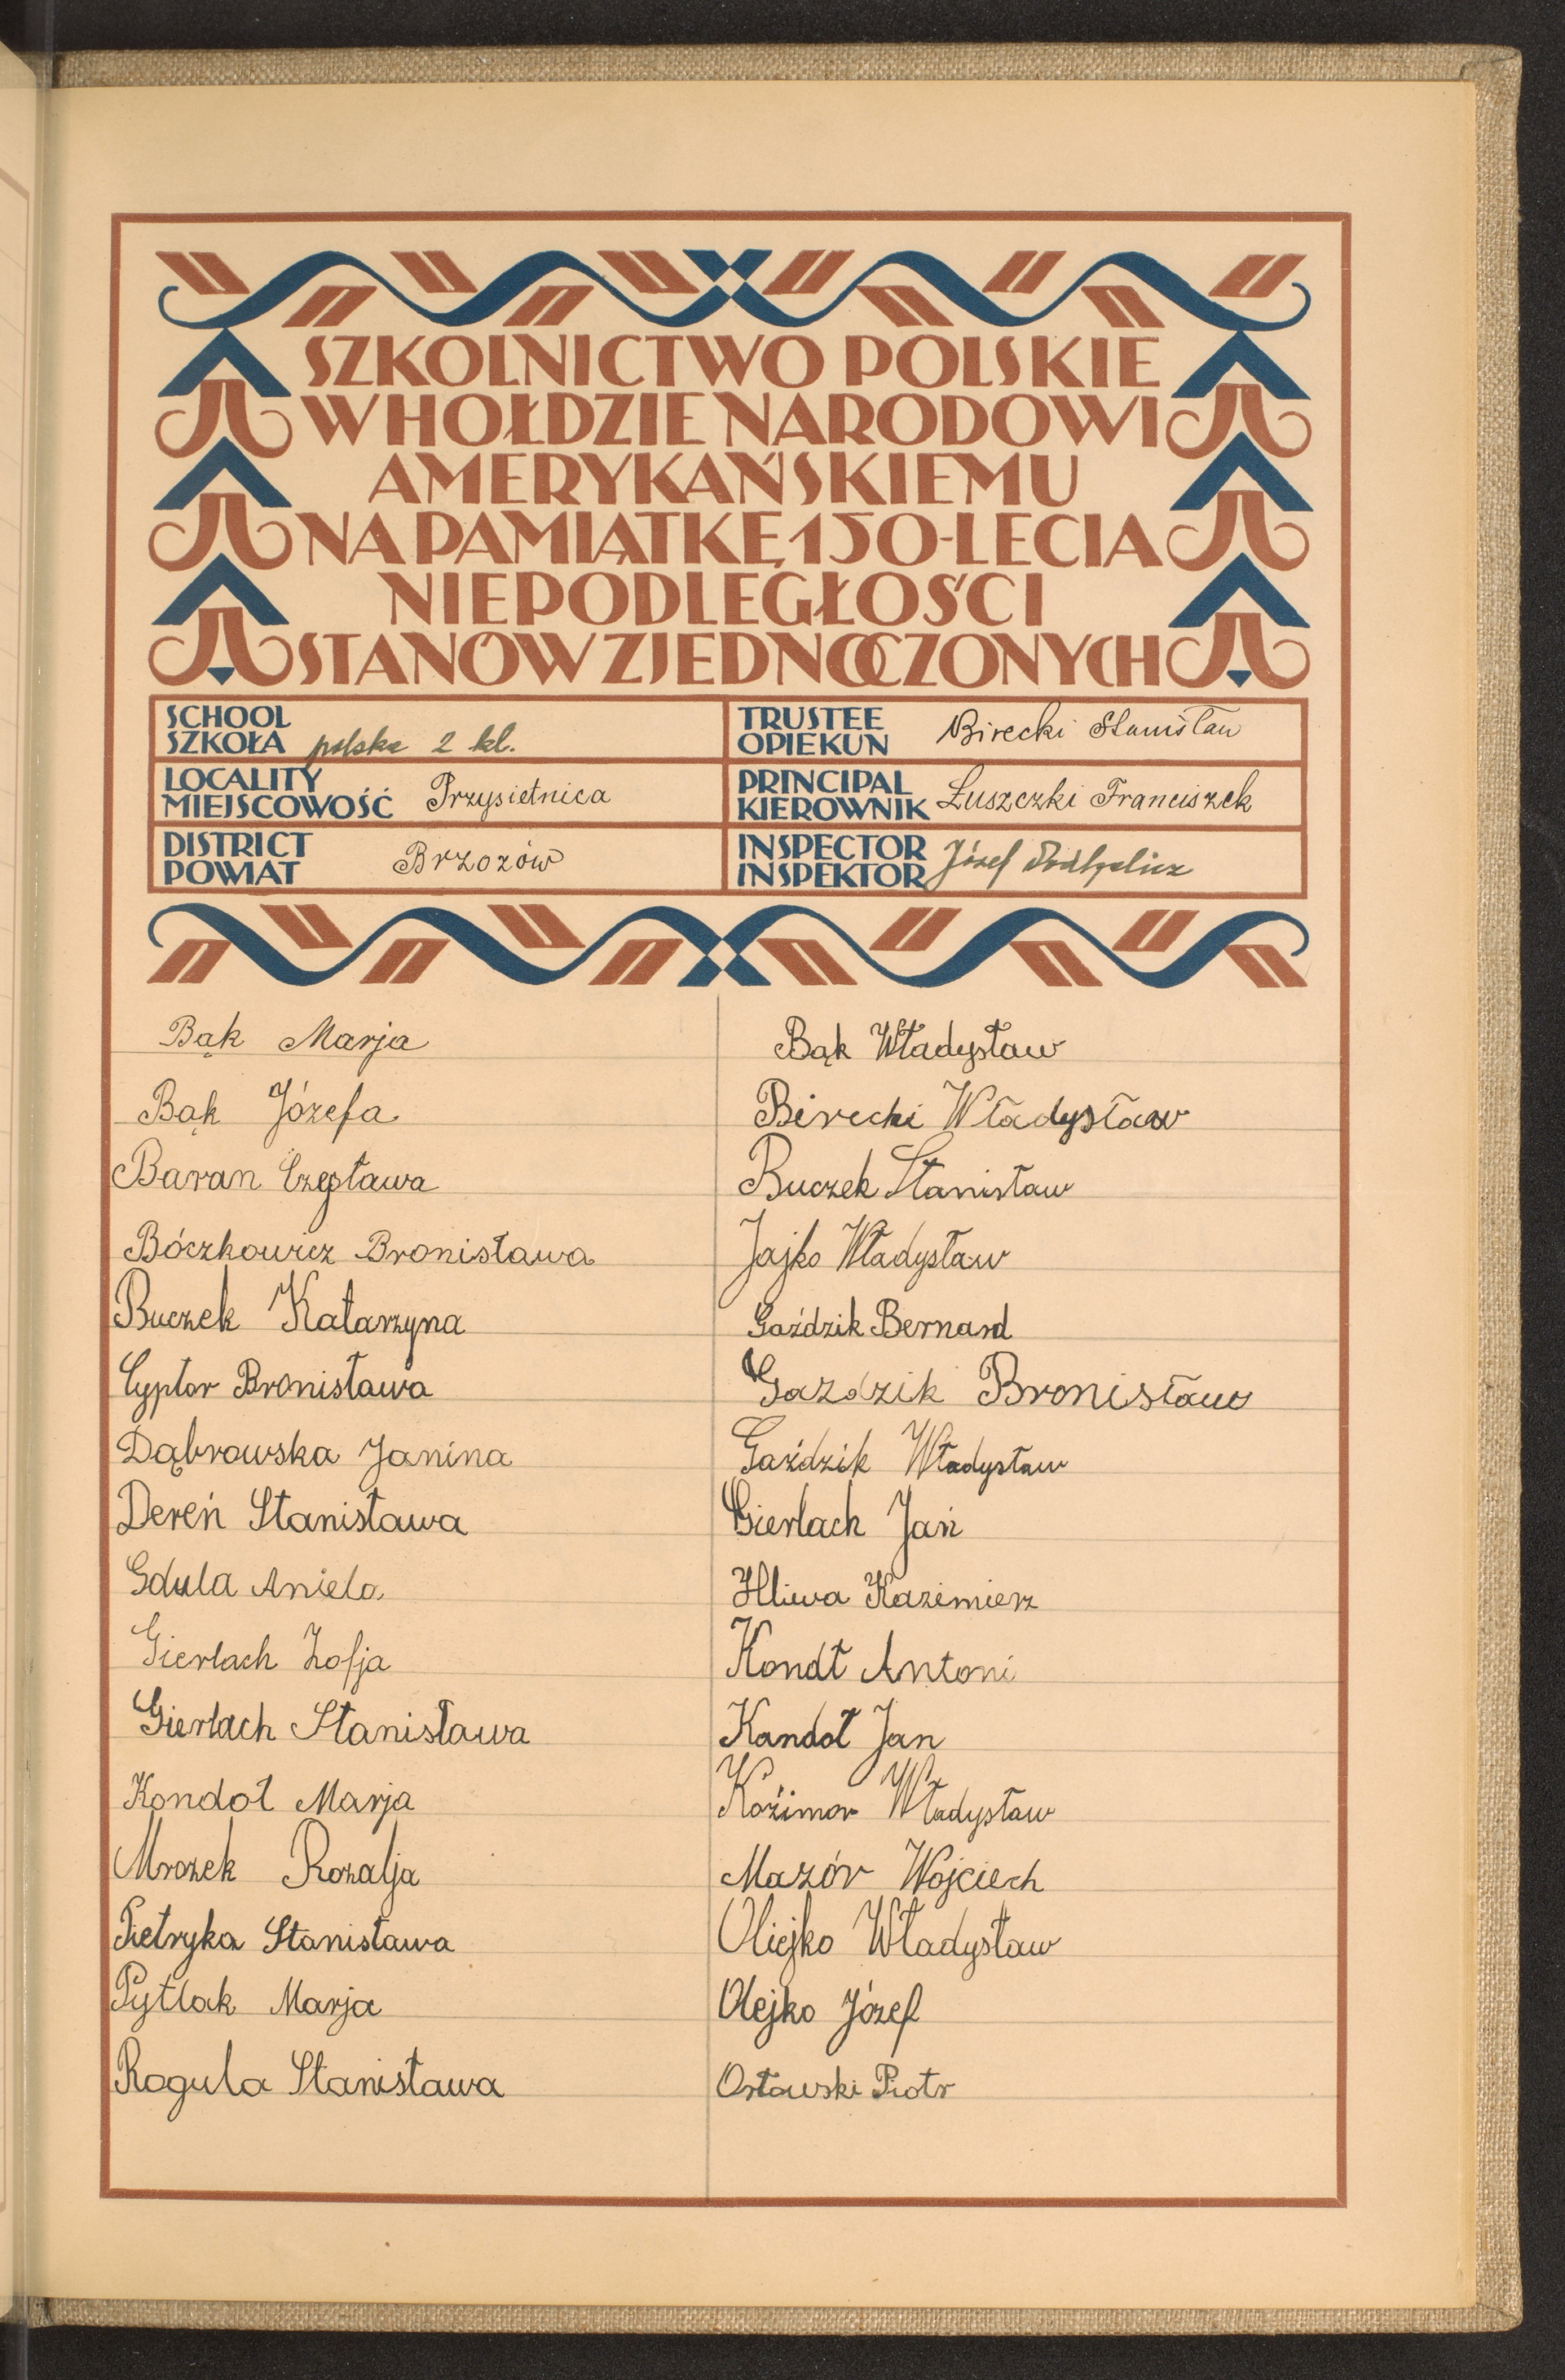 SZKOLNICTWO POLSKIE
W HOŁDZIE NARODOWI
AMERYKAŃSKIEMU
NA PAMIĄTKĘ 150-LECIA
NIEPODLEGŁOŚCI
STANÓW ZJEDNOCZONYCH
SCHOOL
SZKOŁA polska 2 kl.
TRUSTEE
OPIEKUN Birecki Stanisław
LOCALITY
MIEJSCOWOŚĆ Przysietnica
PRINCIPAL
KIEROWNIK Łuszczki Franciszek
DISTRICT
POWIAT Brzozów
INSPECTOR
INSPEKTOR Józef
Bąk Marja
Bąk Józefa
Baran Czesława
Bóczkowicz Bronisława
Buczek Katarzyna
Cyptor Bronisława
Dąbrowska Janina
Dereń Stanisława
Gdula Aniela
Gierlach Zofja
Gierlach Stanisława
Kondoł Marja
Mrozek Rozalja
Pietryka Stanisława
Pytlak Marja
Rogula Stanisława
Bąk Władysław
Birecki Władysław
Buczek Stanisław
Jajko Władysław
Gaździk Bernard
Gazdzik Bronisław
Gaździk Władysław
Gierlach Jan
Hliwa Kazimierz
Kondł Antoni
Kandoł Jan
Koźimor Władysław
Mazór Wojciech
Oliejko Władysław
Olejko Józef
Orłowski Piotr